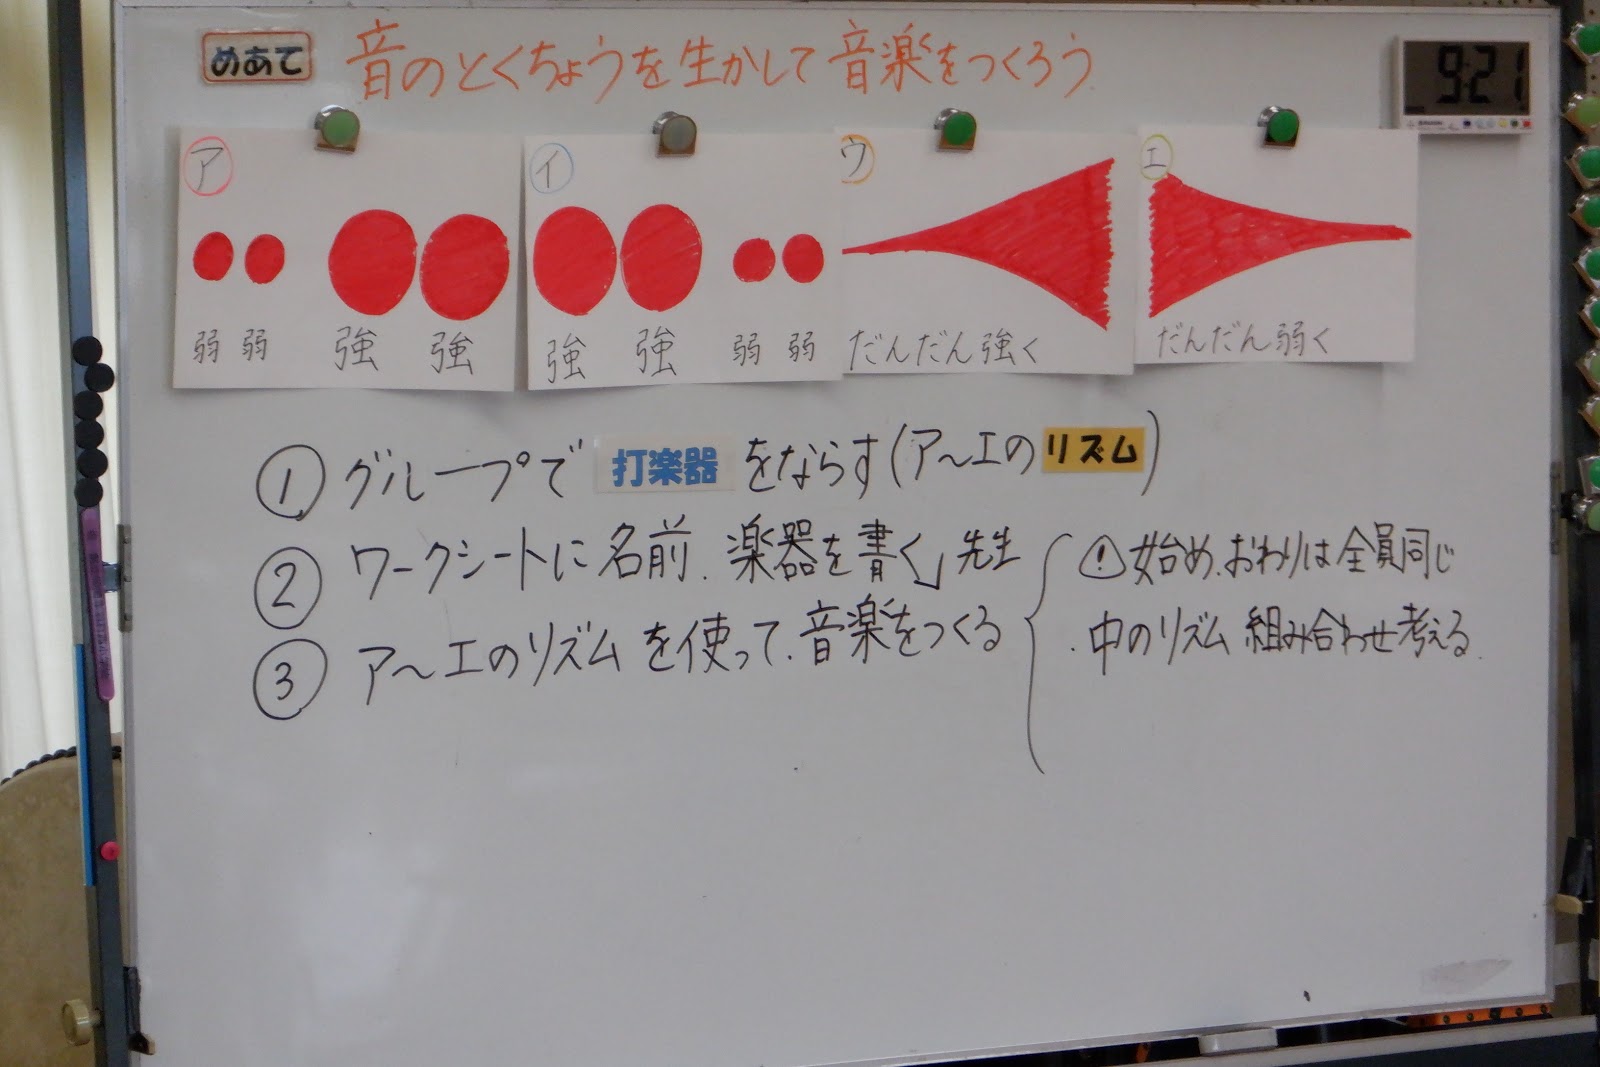 めあて 音のとくちょうを生かして音楽をつくろう
9:21
ア
弱 弱 強 強
イ
強 強 弱 弱
ウ
だんだん強く
エ
だんだん弱く
① グループで 打楽器 をならす(ア〜エの リズム )
② ワークシートに名前、楽器を書く」先生
③ ア〜エのリズムを使って、音楽をつくる
! 始め、おわりは全員同じ
・中のリズム 組み合わせ考える。